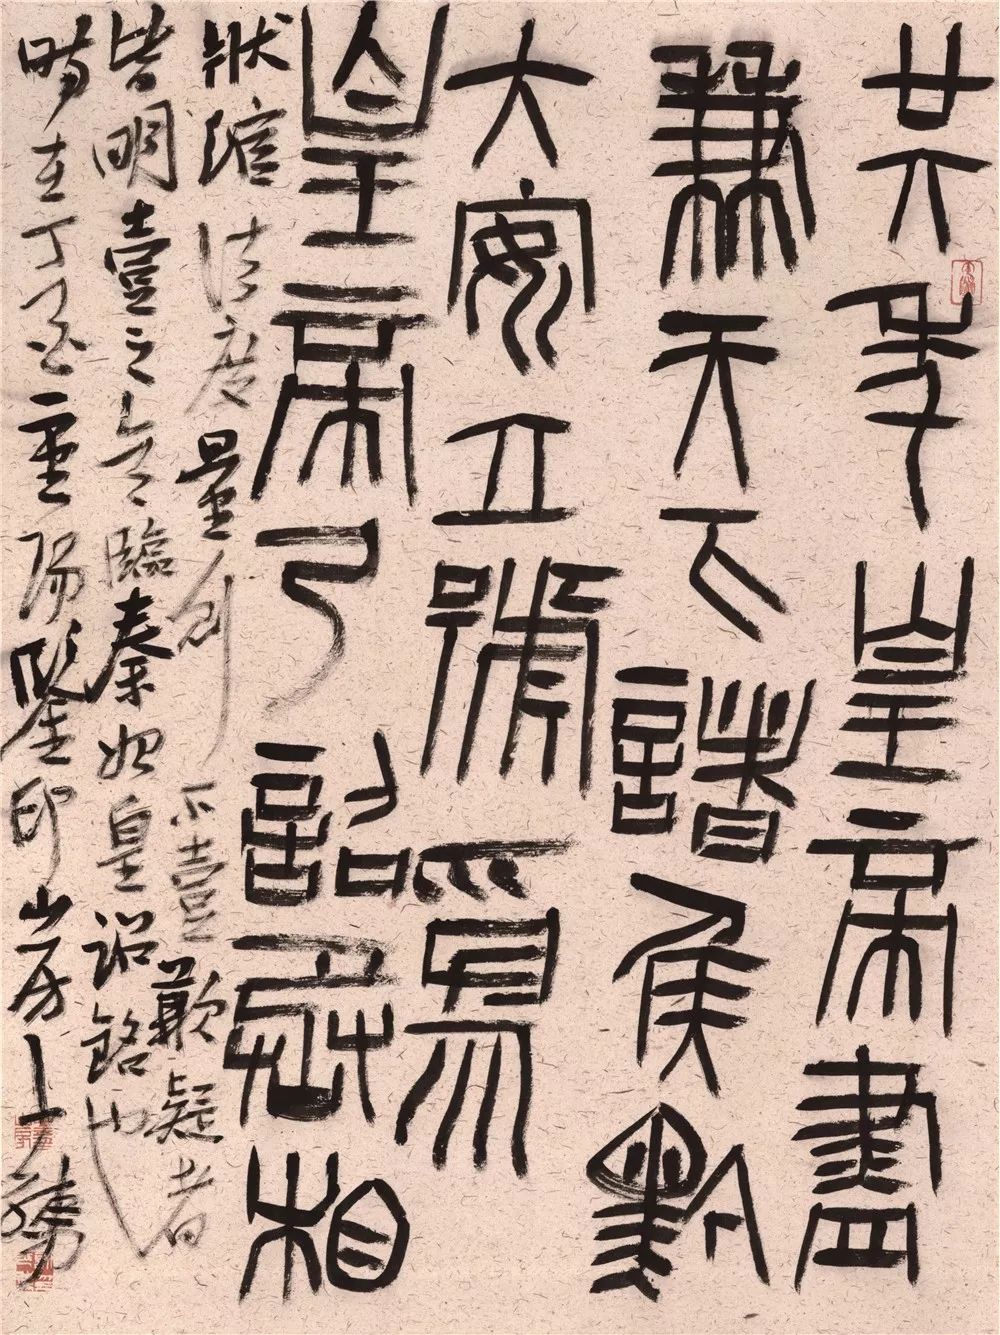 廿六年皇帝盡
兼天下諸侯黔
大安立號為
皇帝乃詔丞相
狀綰法度量則不壹歉疑者
皆明壹之今臨秦始皇詔銘也
時在丁酉重陽鑒印山房